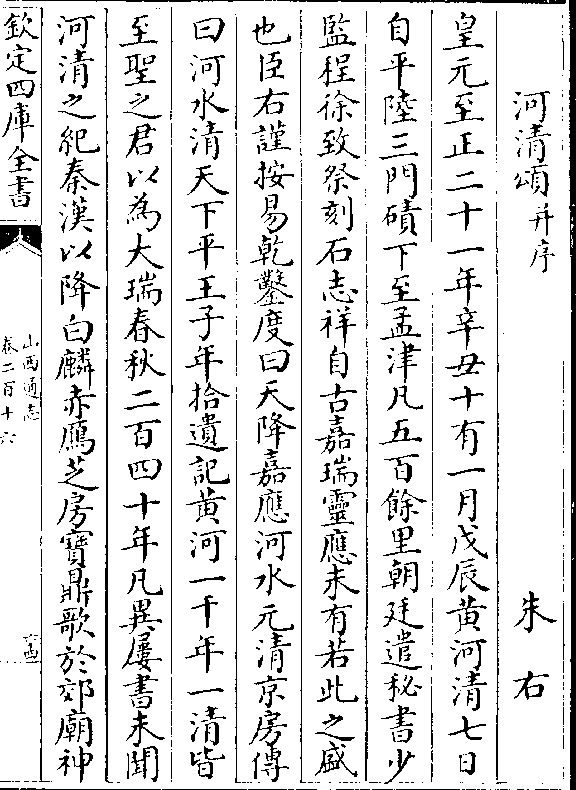 河清頌并序
朱右
皇元至正二十一年辛丑十有一月戊辰黄河清七日
自平陸三門磧下至孟津凡五百餘里朝廷遣秘書少
監程徐致祭刻石志祥自古嘉瑞靈應未有若此之盛
也臣右謹按易乾鑿度曰天降嘉應河水元清京房傳
曰河水清天下平王子年拾遺記黄河一千年一清皆
至聖之君以為大瑞春秋二百四十年凡異屢書未聞
河清之紀秦漢以降白麟赤鴈芝房寶鼎歌於郊廟神
欽定四庫全書
山西通志
卷二百十六